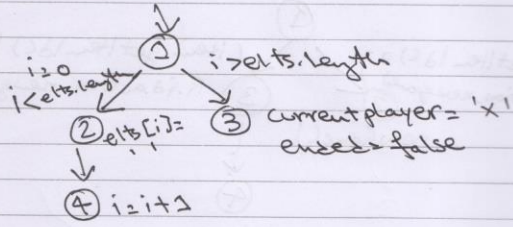 1
i=0
i<elts.length
i>elts.length
2 elts[i]=
' '
3 currentplayer='x'
ended=false
4 i=i+1